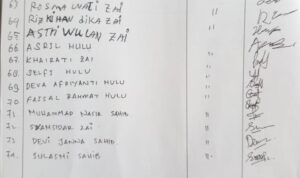 63 ROSMA WATI ZAI "
64 RIZKIHAN DIKA ZAI "
65 ASTTI WULAN ZAI "
66 ASRIL HULU "
67 KHAIRATI ZAI "
68 JELFI HULU "
69 DEVA AFRIYANTI HULU "
70 FAISAL RAHMAT HULU "
71. MUHAMMAD NASIR SAHIB "
72. ISKANDAR ZAI "
73 DEVI JANNA SAHIB "
74. SULASMI SAHIB "